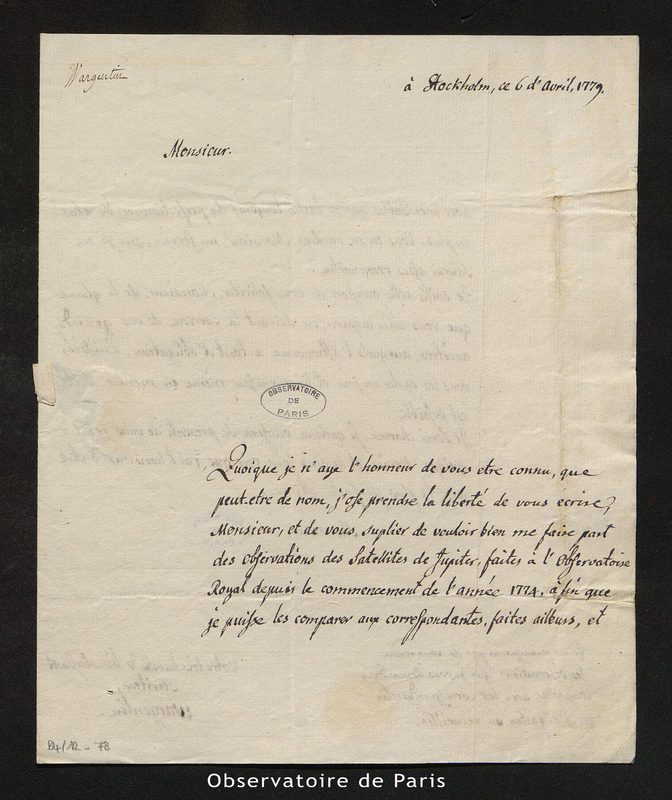 Wargentin
à Stockholm, ce 6 d'Avril, 1779.
Monsieur.
OBSERVATOIRE
DE
PARIS
Quoique je n'aye l'honneur de vous etre connu, que
peut-etre de nom, j'ose prendre la liberté de vous écrire,
Monsieur, et de vous suplier de vouloir bien me faire part
des observations des Satellites de Jupiter, faites à l'Observatoire
Royal depuis le commencement de l'année 1774, à fin que
je puisse les comparer aux correspondantes, faites ailleurs, et
B4/12 - 78
Observatoire de Paris